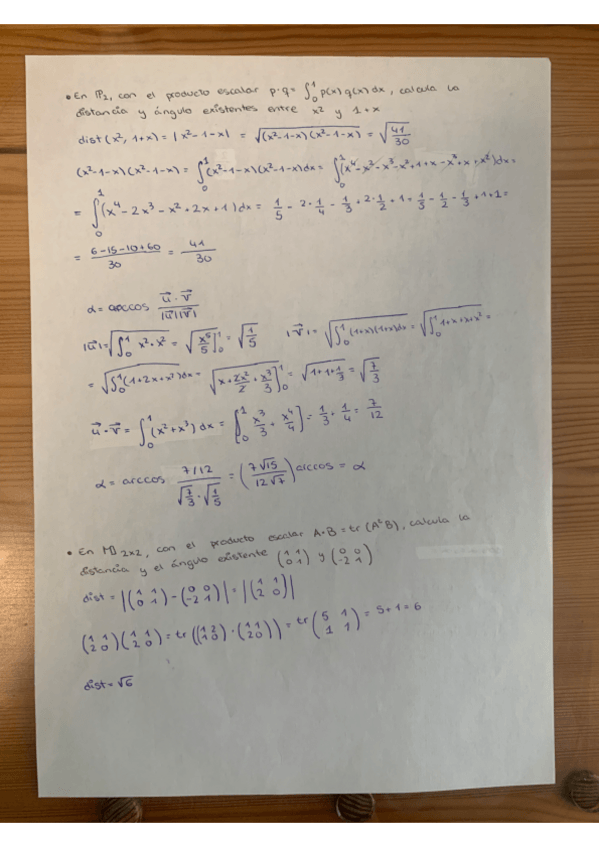 • En P₂, con el producto escalar p·q = ∫₀¹ p(x) q(x) dx, calcula la
distancia y ángulo existentes entre x² y 1+x
dist (x², 1+x) = |x²-1-x| = √((x²-1-x)(x²-1-x)) = √(41/30)
(x²-1-x)(x²-1-x) = ∫₀¹ (x²-1-x)(x²-1-x)dx = ∫₀¹ (x⁴-x²-x³-x²+1+x-x³+x+x²)dx =
= ∫₀¹ (x⁴ - 2x³ - x² + 2x + 1) dx = 1/5 - 2·1/4 - 1/3 + 2·1/2 + 1 = 1/5 - 1/2 - 1/3 + 1 + 1 =
= (6-15-10+60)/30 = 41/30
α = arccos (u⃗ · v⃗)/(|u⃗||v⃗|)
|u⃗| = √(∫₀¹ x²·x²) = √(x⁵/5]₀¹) = √(1/5) |v⃗| = √(∫₀¹ (1+x)(1+x)dx) = √(∫₀¹ 1+x+x+x²) =
= √(∫₀¹ (1+2x+x²)dx) = √(x + 2x²/2 + x³/3]₀¹) = √(1+1+1/3) = √(7/3)
u⃗ · v⃗ = ∫₀¹ (x²+x³) dx = [₀¹ x³/3 + x⁴/4] = 1/3 + 1/4 = 7/12
α = arccos (7/12)/(√(7/3) · √(1/5)) = (7√15/12√7) arccos = α
• En M 2x2, con el producto escalar A·B = tr (AᵗB), calcula la
distancia y el ángulo existente (1 1 / 0 1) y (0 0 / -2 1)
dist = |(1 1 / 0 1) - (0 0 / -2 1)| = |(1 1 / 2 0)|
(1 1 / 2 0)(1 1 / 2 0) = tr ((1 2 / 1 0) · (1 1 / 2 0)) = tr (5 1 / 1 1) = 5+1 = 6
dist = √6